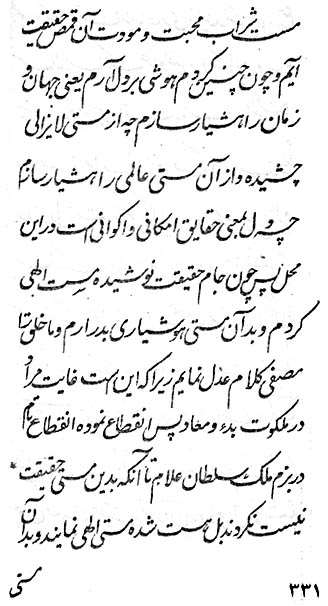 مست شراب محبت و مودت آن قمص حقیقت
آیم و چون چنین کردم هوشی بر دل آرم یعنی جهان و
زمان را هشیار سازم چه از مستی لایزالی
چشیده و از آن مستی عالمی را هشیار سازم
چه دل بمعنی حقایق امکانی و اکوانی است در این
محل پس چون جام حقیقت نوشیده مست الهی
کردم و بدآن مستی هوشیاری بدر ارم و ما خلق را
مصفی کلام عدل نمایم زیرا که این است غایت مراد
در ملکوت بدء و معاد پس انقطاع نموده انقطاع تام
در بزم ملک سلطان علام تا آنکه بدین مستی حقیقت
نیست نکردند بل هست شده مستی الهی نمایند و بدآن
مستی
۳۳۱